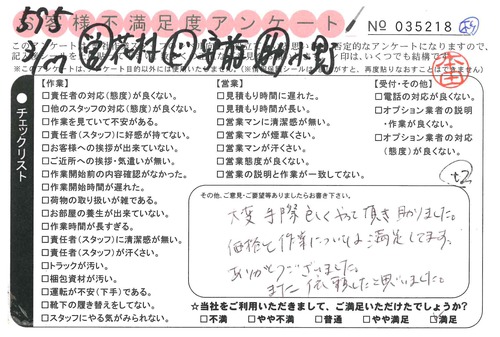 お客様不満足度アンケート
No 035218
【作業】
□責任者の対応(態度)が良くない。
□他のスタッフの対応(態度)が良くない。
□作業を見ていて不安がある。
□責任者(スタッフ)に好感が持てない。
□お客様への挨拶が出来ていない。
□ご近所への挨拶・気遣いが無い。
□作業開始前の内容確認がなかった。
□作業開始時間が遅れた。
□荷物の取り扱いが雑である。
□お部屋の養生が出来ていない。
□作業時間が長すぎる。
□責任者(スタッフ)に清潔感が無い。
□責任者(スタッフ)が汗くさい。
□トラックが汚い。
□梱包資材が汚い。
□運転が不安(下手)である。
□靴下の履き替えをしてない。
□スタッフにやる気がみられない。
【営業】
□見積もり時間に遅れた。
□見積もり時間が長い。
□営業マンに清潔感が無い。
□営業マンが煙草くさい。
□営業マンが汗くさい。
□営業態度が良くない。
□営業の説明と作業が一致してない。
【受付・その他】
□電話の対応が良くない。
□オプション業者の説明
・作業が良くない。
□オプション業者の対応
(態度)が良くない。
チェックリスト
その他、ご意見・ご要望等ありましたらお書き下さい。
大変手際良くやって頂き助かりました。
価格と作業については満足してます。
ありがとうございました。
また依頼したいと思いました。
☆当社をご利用いただきまして、ご満足いただけたでしょうか?
□不満 □やや不満 □普通 □やや満足 □満足